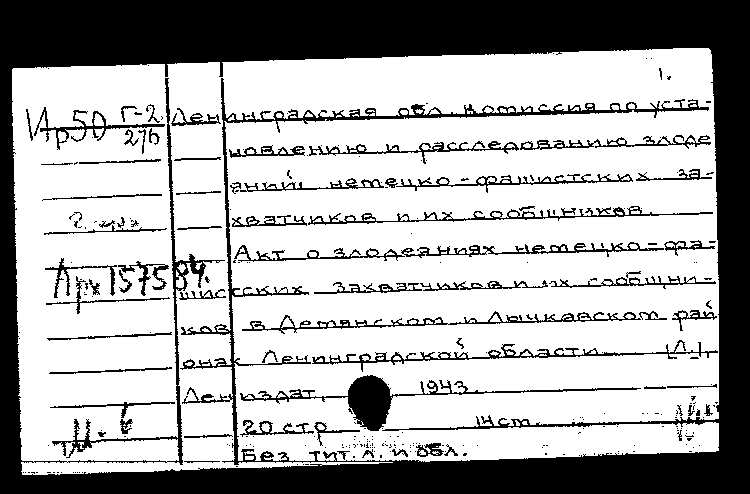 1.
Ир50 Г-2/276 Ленинградская обл. Комиссия по уста-
новлению и расследованию злоде
яний немецко-фашистских за-
хватчиков и их сообщников.
Акт о злодеяниях немецко-фа-
шистских захватчиков и их сообщни-
ков в Демянском и Лычковском рай
онах Ленинградской области. [Л.],
Лениздат, 1943.
20 стр 14 см.
Без тит. л. и обл.
157584.